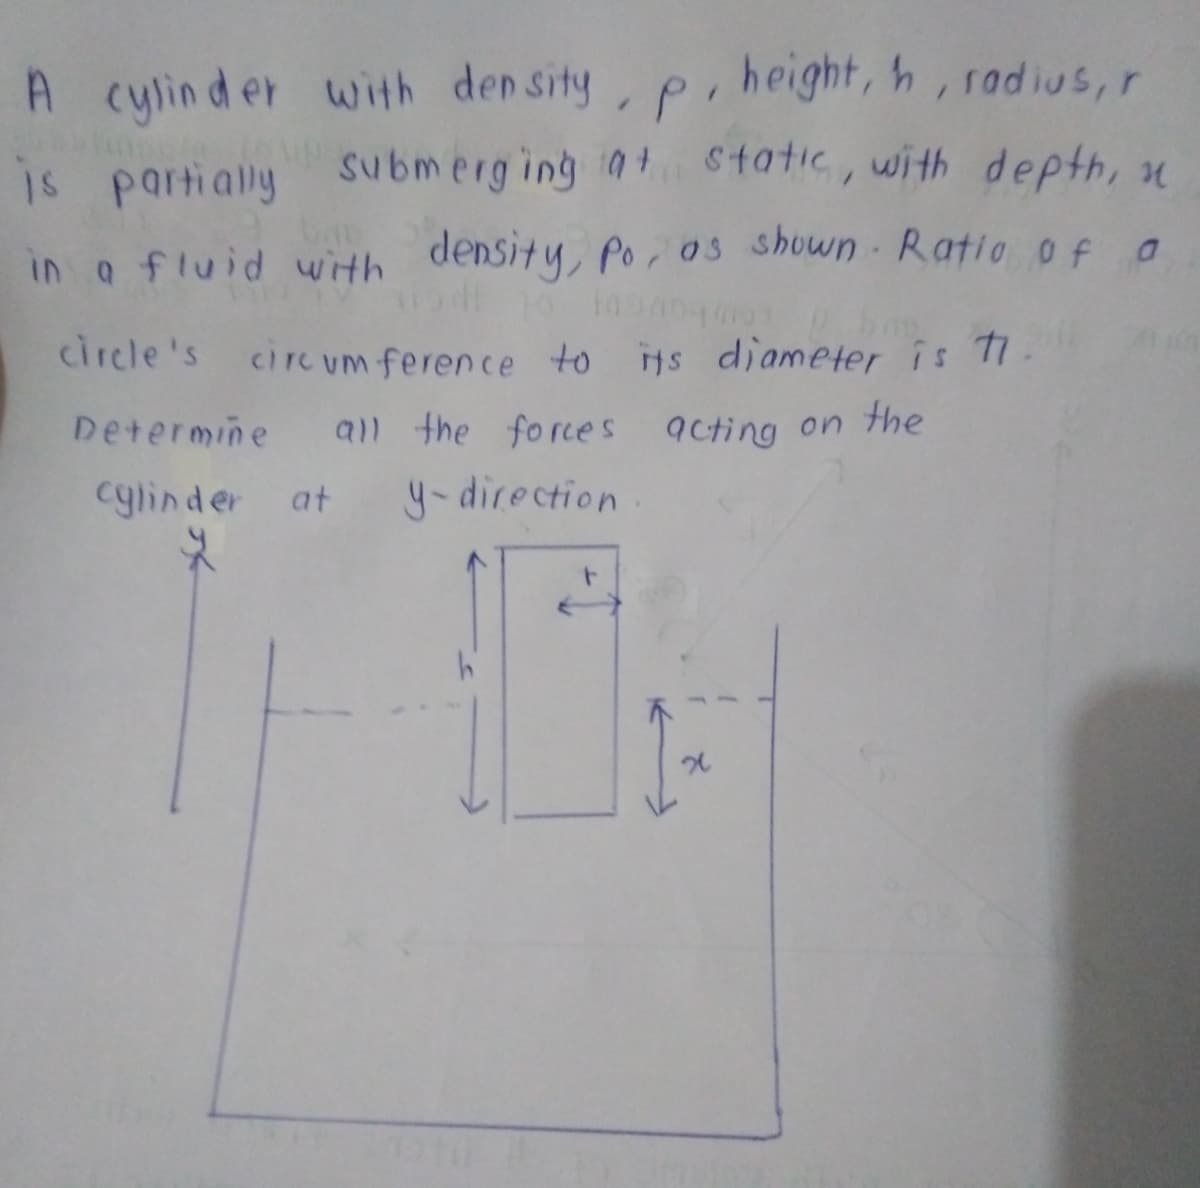 A cylinder with density, ρ, height, h, radius, r
is partially submerging at static, with depth, x
in a fluid with density, ρo, as shown. Ratio of a
circle's circumference to its diameter is π.
Determine all the forces acting on the
cylinder at y-direction.
y
r
h
x